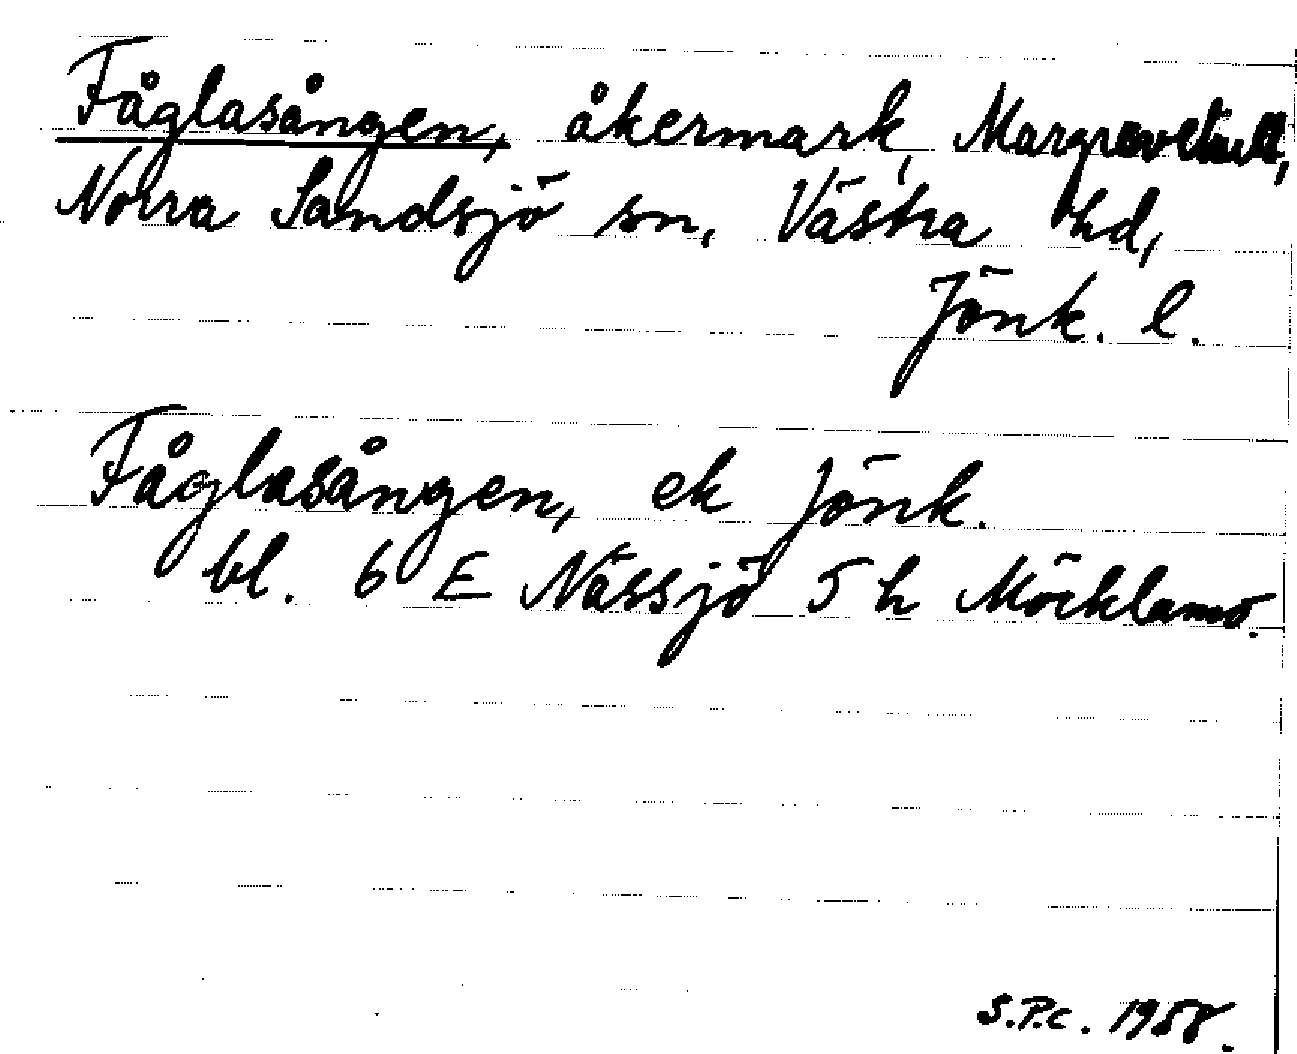 Fåglasången, åkermark, Margrevetult,
Norra Sandsjö sn, Västra hd,
Jönk. l.
Fåglasången, ek Jönk.
bl. 6 E Nässjö 5 h Möcklamo.
S.P.c. 1958.